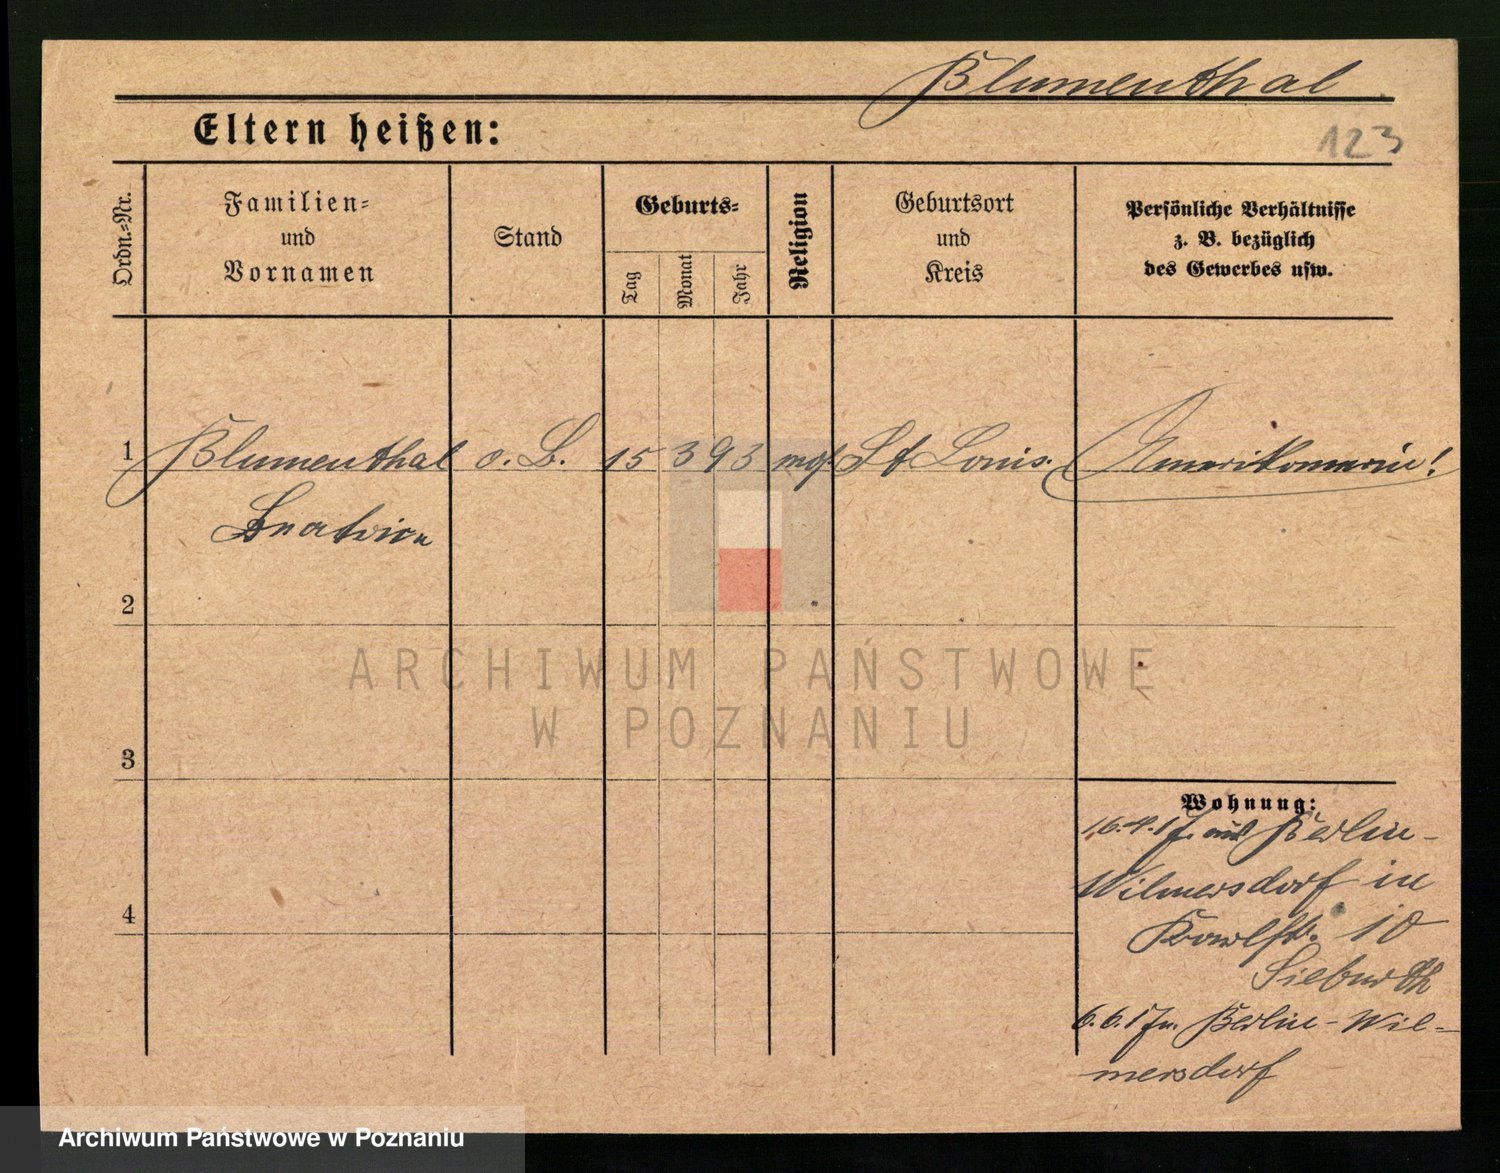 Blumenthal
Eltern heißen:
123
Ordn.-Nr.
Familien-
und
Vornamen
Stand
Geburts-
Tag
Monat
Jahr
Religion
Geburtsort
und
Kreis
Persönliche Verhältnisse
z. B. bezüglich
des Gewerbes usw.
1 Blumenthal o. B. 15 3 93 mos. St Louis. Amerikanerin!
Beatrice
2
3
4
Wohnung:
16.4.17. aus Berlin-
Wilmersdorf in
10
Sieburth
6.6.17 n. Berlin-Wil-
mersdorf
ARCHIWUM PAŃSTWOWE
W POZNANIU
Archiwum Państwowe w Poznaniu